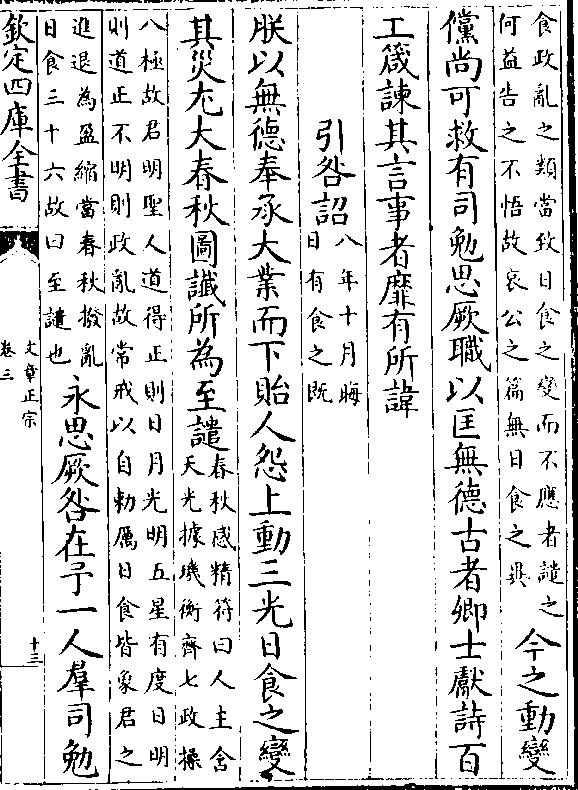 食政亂之類當致日食之變而不應者譴之
何益告之不悟故哀公之篇無日食之異
今之動變
儻尚可救有司勉思厥職以匡無德古者卿士獻詩百
工箴諫其言事者靡有所諱
引咎詔
八年十月晦
日有食之既
朕以無德奉承大業而下貽人怨上動三光日食之變
其災尤大春秋圖讖所為至譴
春秋感精符曰人主含
天光據璣衡齊七政操
八極故君明聖人道得正則日月光明五星有度日明
則道正不明則政亂故常戒以自勅厲日食皆象君之
進退為盈縮當春秋撥亂
日食三十六故曰至譴也
永思厥咎在予一人羣司勉
欽定四庫全書
文章正宗
卷三
十三